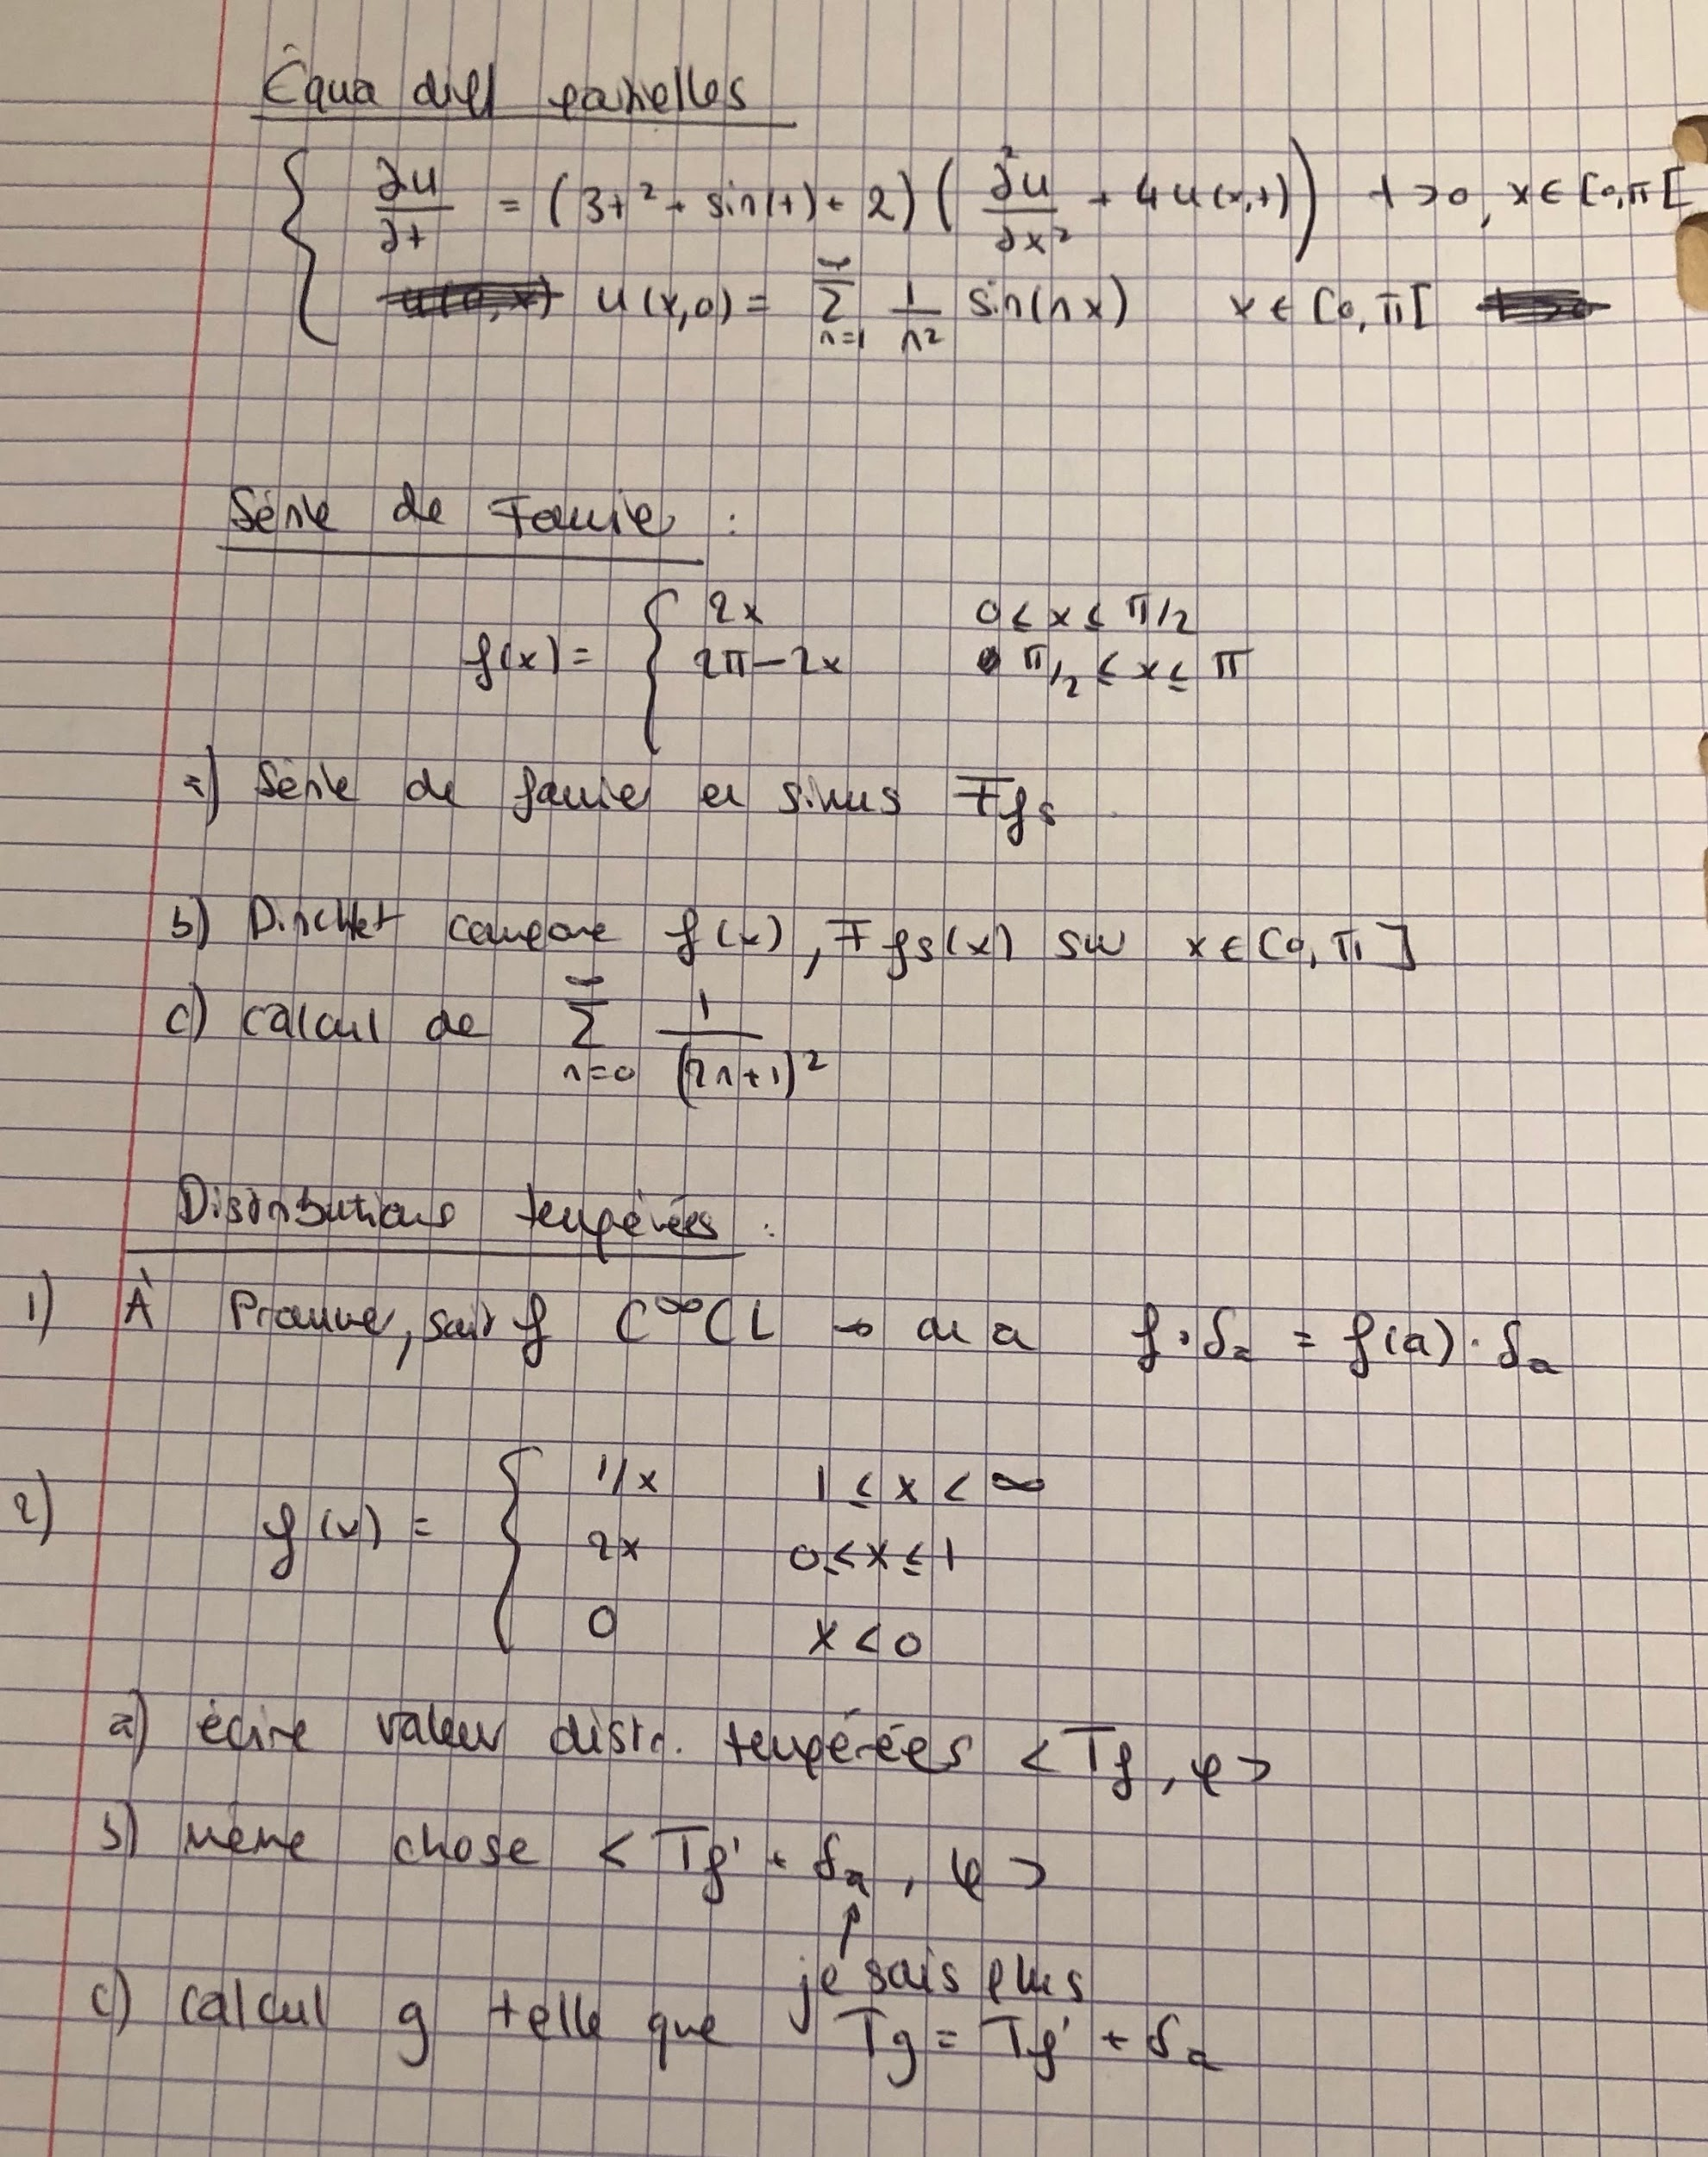 Équa diff parielles
∂u/∂t = (3t² + sin(t) + 2) ( ∂²u/∂x² + 4u(x,t) ) t>0, x∈[0,π[
u(x,0) = ∑_{n=1}^{∞} 1/n² sin(nx) x∈[0,π[
Série de Fourier :
f(x) = { 2x 0≤x≤π/2
2π-2x π/2≤x≤π
a) Série de fourier en sinus Ffs
b) Dirichlet compare f(x), Ffs(x) sur x∈[0,π]
c) calcul de ∑_{n=0}^{∞} 1/(2n+1)²
Distributions tempérées :
1) À Prouver, soit f C^∞ CL → de a f·δa = f(a)·δa
2) f(x) = { 1/x 1≤x<∞
2x 0≤x≤1
0 x<0
a) écrire valeur distr. tempérées <Tf, φ>
b) même chose <Tf' + δa, φ>
↑
je sais plus
c) calcul g telle que Tg = Tf' + δa